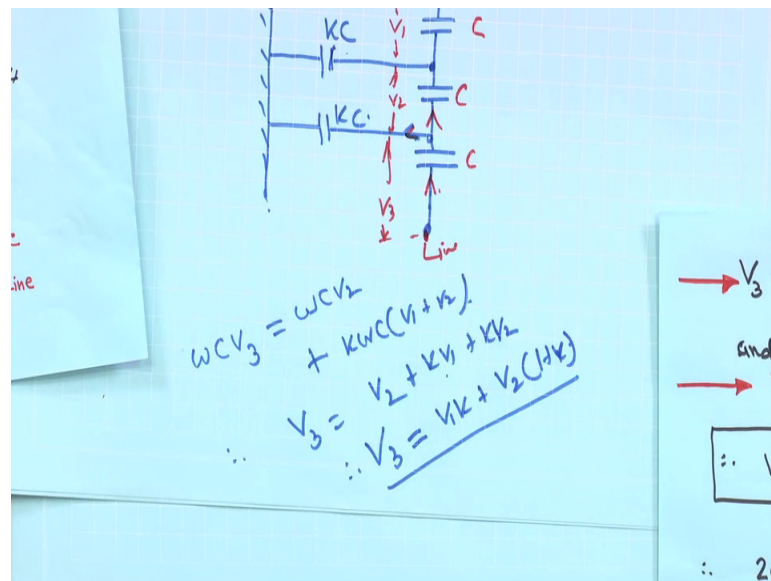 C
KC
V₁
V₂
C
KC.
C
V₃
Line
ine
ωCV₃ = ωCV₂
+ KωC(V₁+V₂).
∴ V₃ = V₂ + KV₁ + KV₂
∴ V₃ = V₁K + V₂(1+K)
V₃
and
∴ V
∴ 2